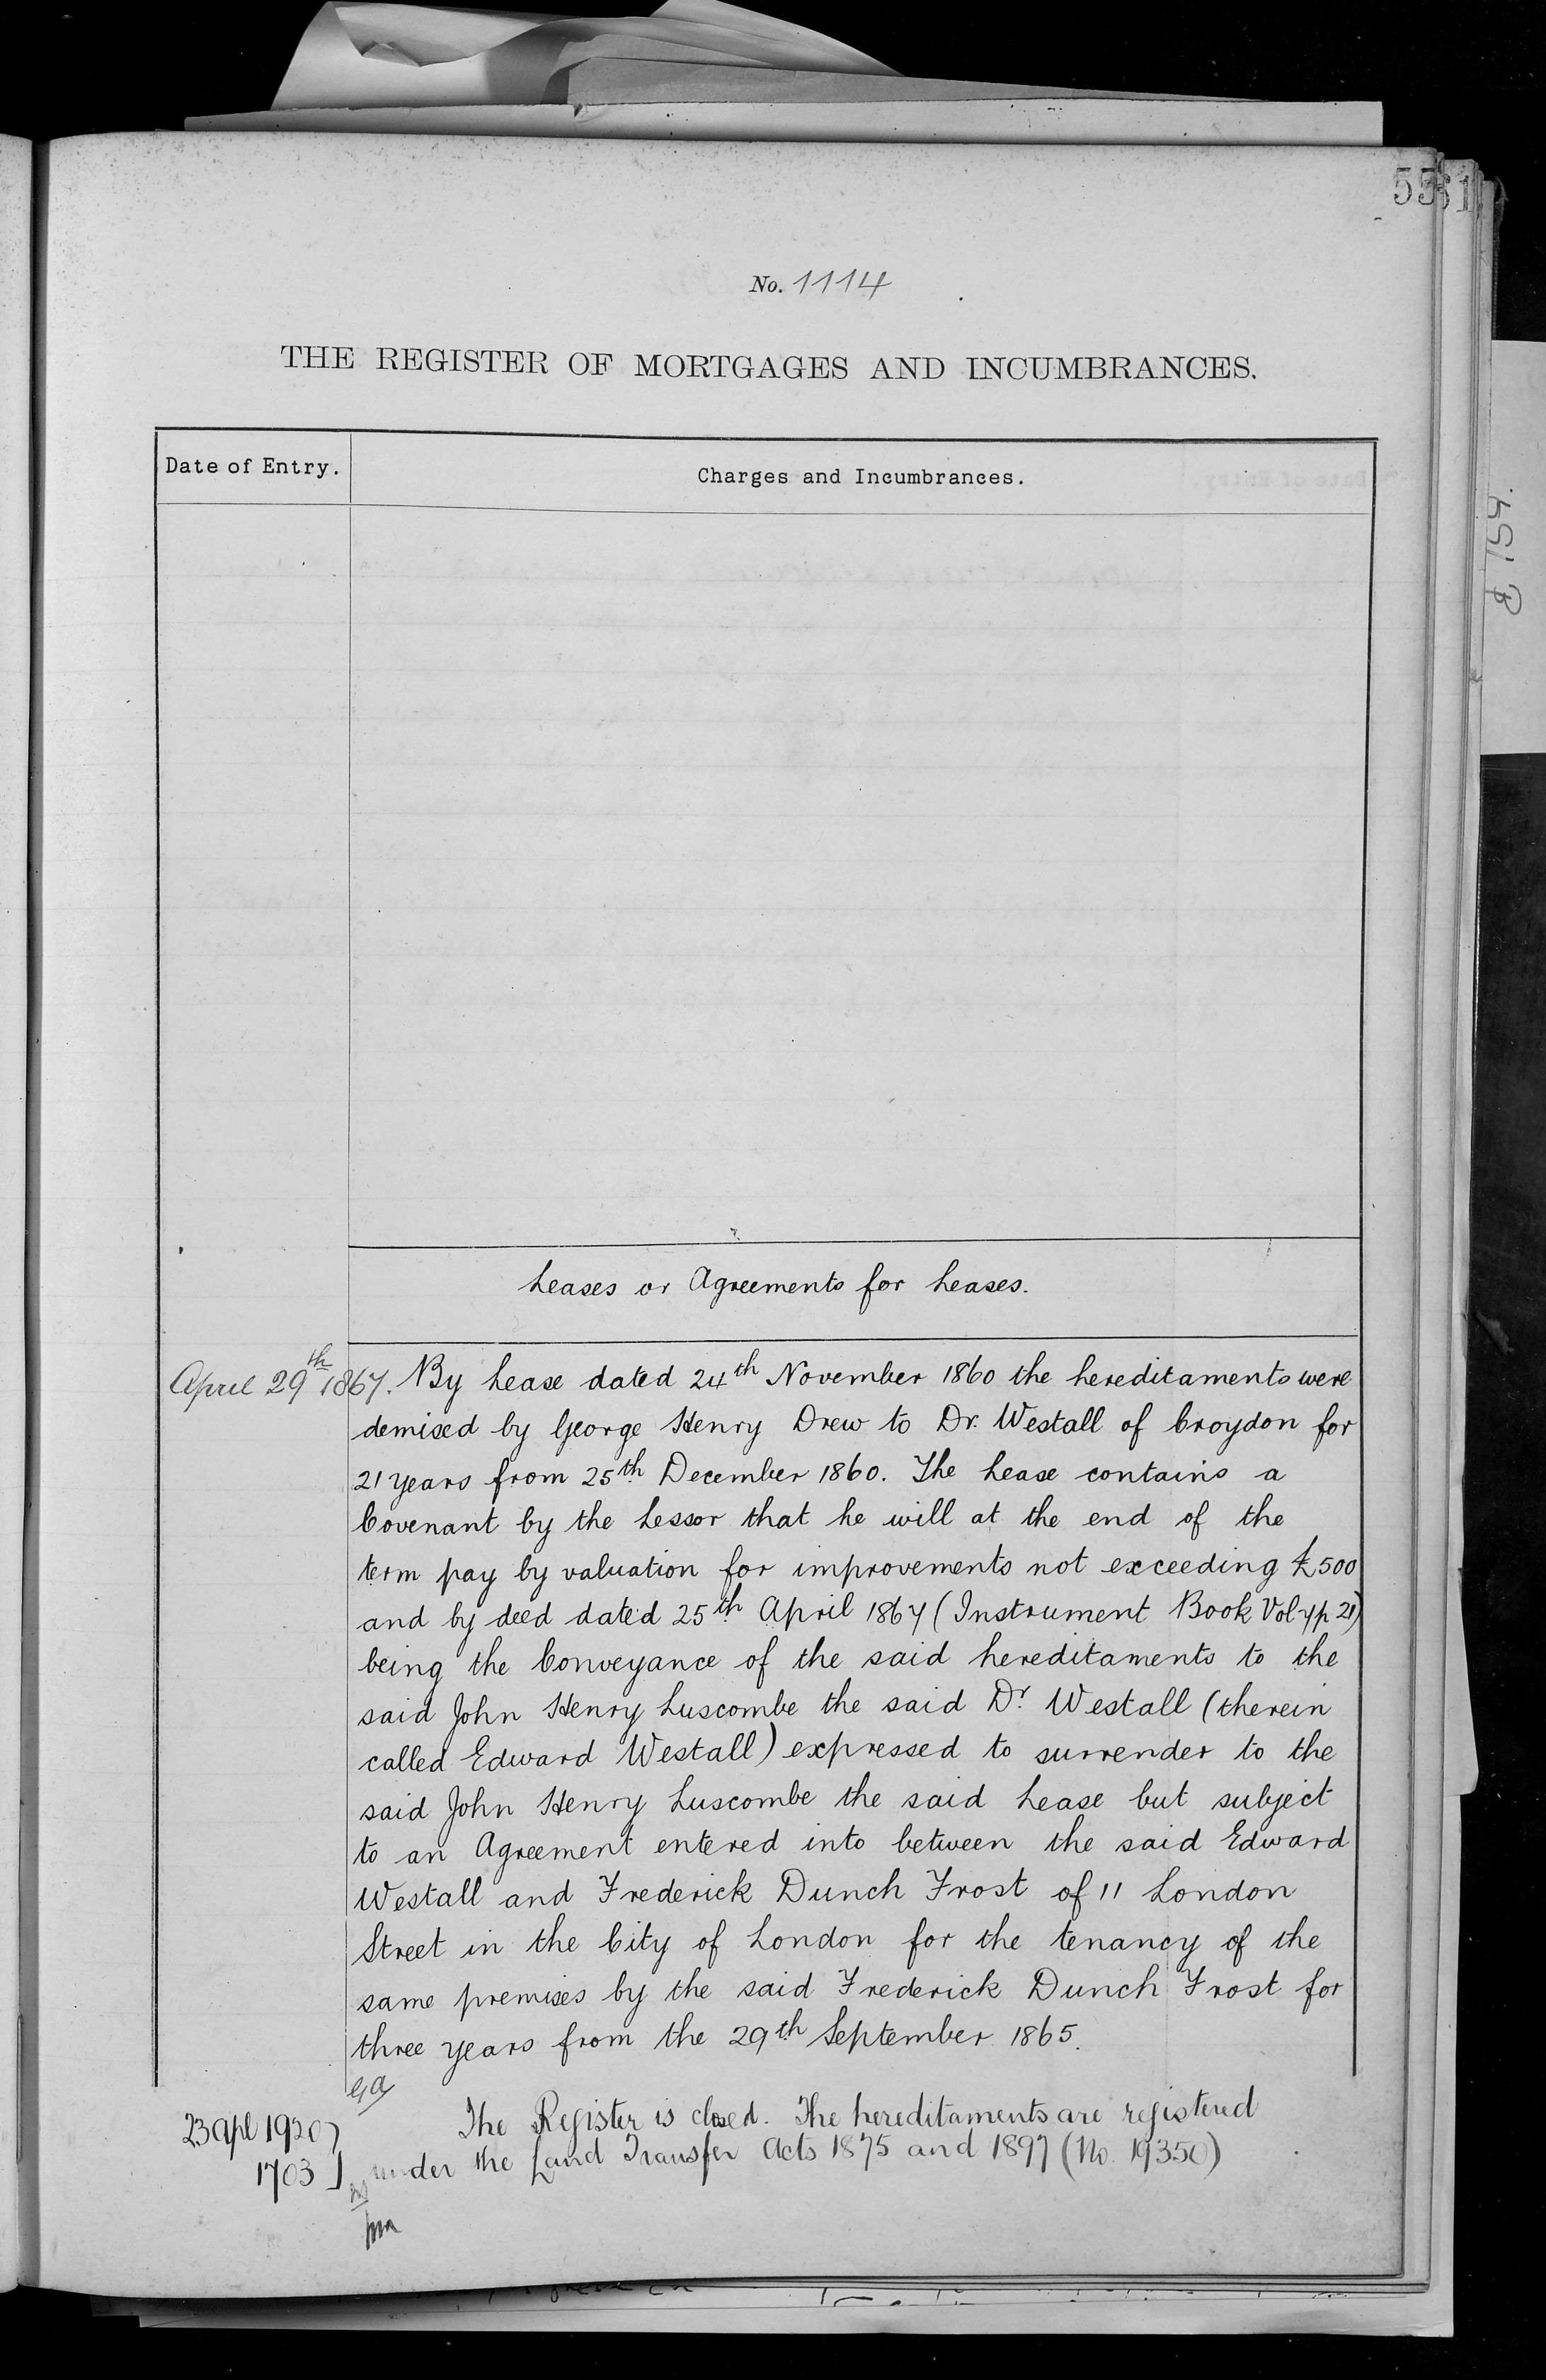 55
31
No. 1114
THE REGISTER OF MORTGAGES AND INCUMBRANCES.
Date of Entry.
Charges and Incumbrances.
Leases or Agreements for Leases.
April 29th 1867. By Lease dated 24th November 1860 the hereditaments were
demised by George Henry Drew to Dr. Westall of Croydon for
21 years from 25th December 1860. The Lease contains a
Covenant by the Lessor that he will at the end of the
term pay by valuation for improvements not exceeding £500
and by deed dated 25th April 1867 (Instrument Book Vol 7 p 21)
being the Conveyance of the said hereditaments to the
said John Henry Luscombe the said Dr. Westall (therein
called Edward Westall) expressed to surrender to the
said John Henry Luscombe the said Lease but subject
to an Agreement entered into between the said Edward
Westall and Frederick Dunch Frost of 11 London
Street in the City of London for the tenancy of the
same premises by the said Frederick Dunch Frost for
three years from the 29th September 1865.
23 Apl 1920 The Register is closed. The hereditaments are registered
1703 under the Land Transfer Acts 1875 and 1897 (No. 19350)